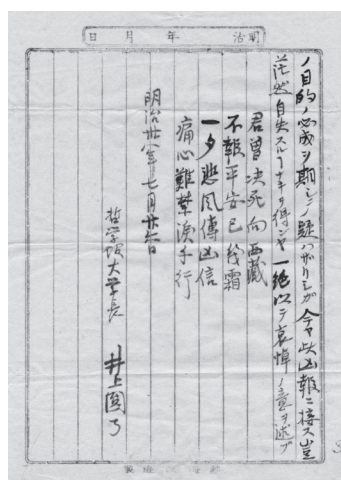 明治　年　月　日
ノ目的ノ必成ヲ期シテ疑ハザリシガ今ヤ此凶報ニ接ス豈
茫然自失スルヿナキヲ得ンヤ一絶以テ哀悼ノ意ヲ述ブ
君曽决死向西藏
不報平安已幾霜
一夕悲風傳凶信
痛心難禁涙千行
明治卅八年七月廿六日
哲学館大学長　井上圓了